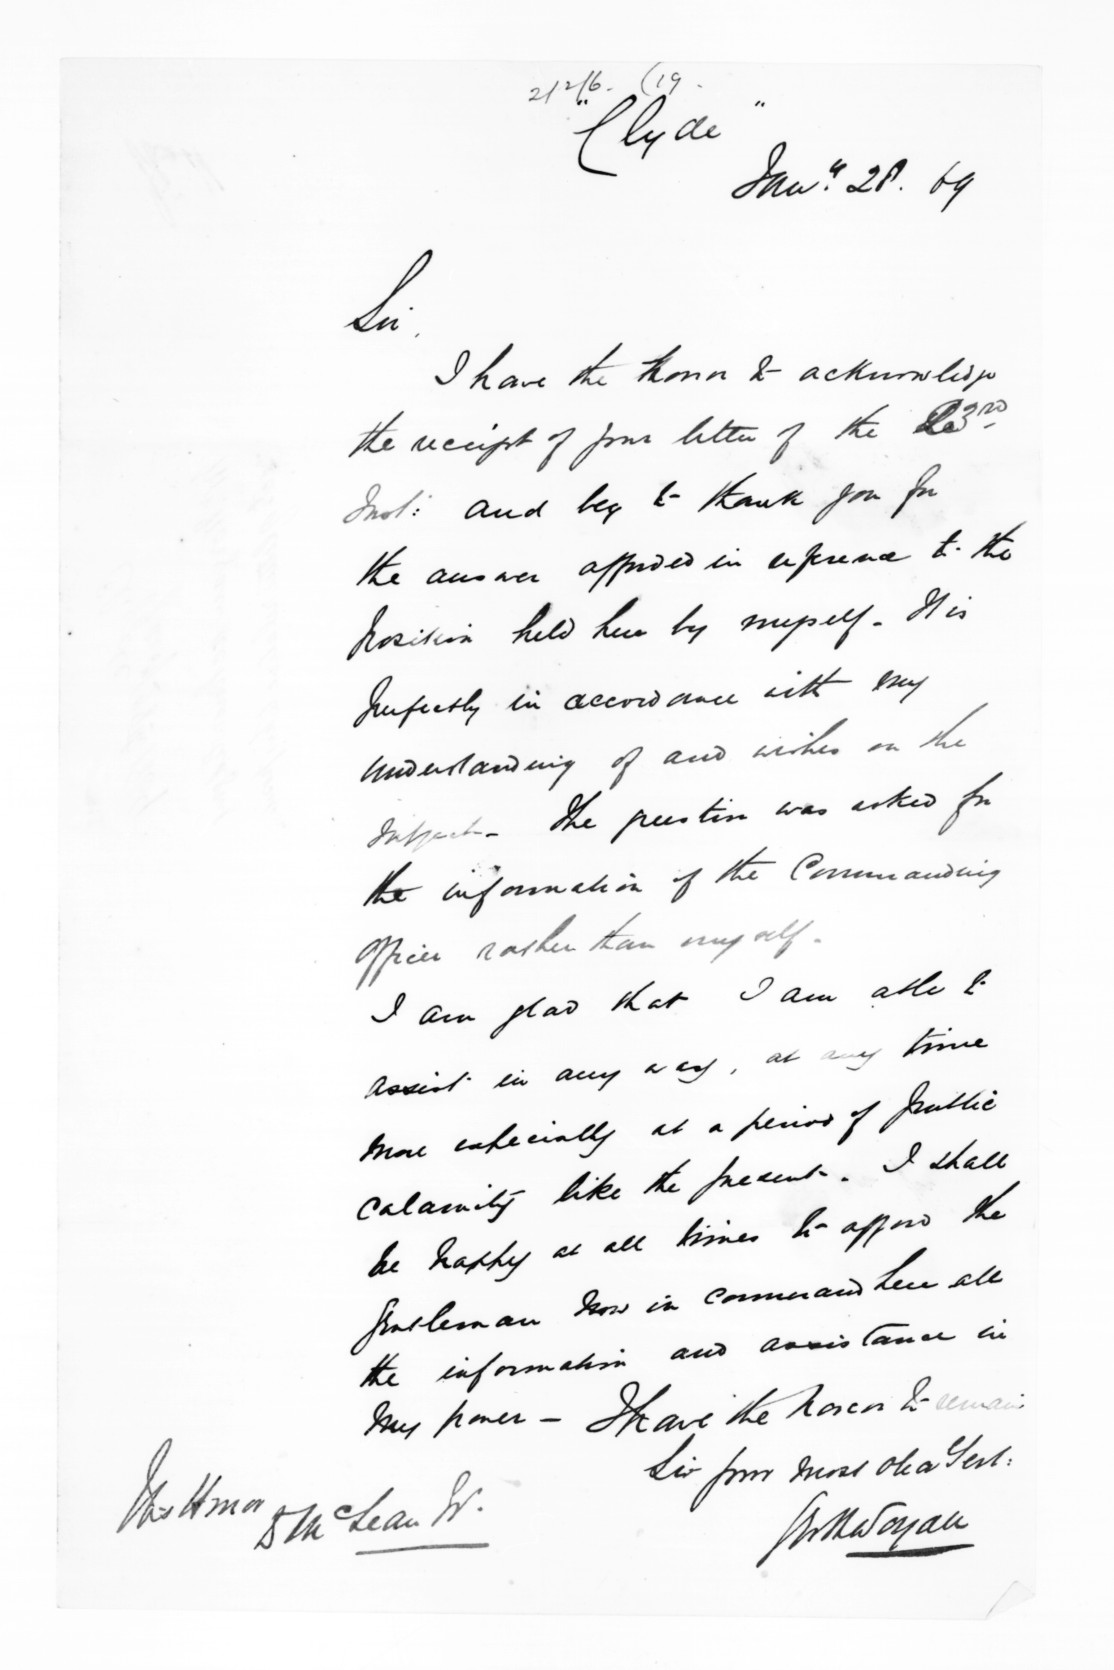 2/2/6. (19.
"Clyde"
Jany. 28. 69
Sir,
I have the honor to acknowledge
the receipt of your letter of the 23rd
Inst: and beg to thank you for
the answer afforded in reference to the
position held here by myself. It is
perfectly in accordance with my
understanding of and wishes on the
subject. The question was asked for
the information of the Commanding
Officer rather than myself.
I am glad that I am able to
assist in any way, at any time
more especially at a period of public
calamity like the present. I shall
be happy at all times to afford the
Gentleman now in command here all
the information and assistance in
my power – I have the honor to remain
Sir your most obed Servt:
His Honor
D McLean Esq.